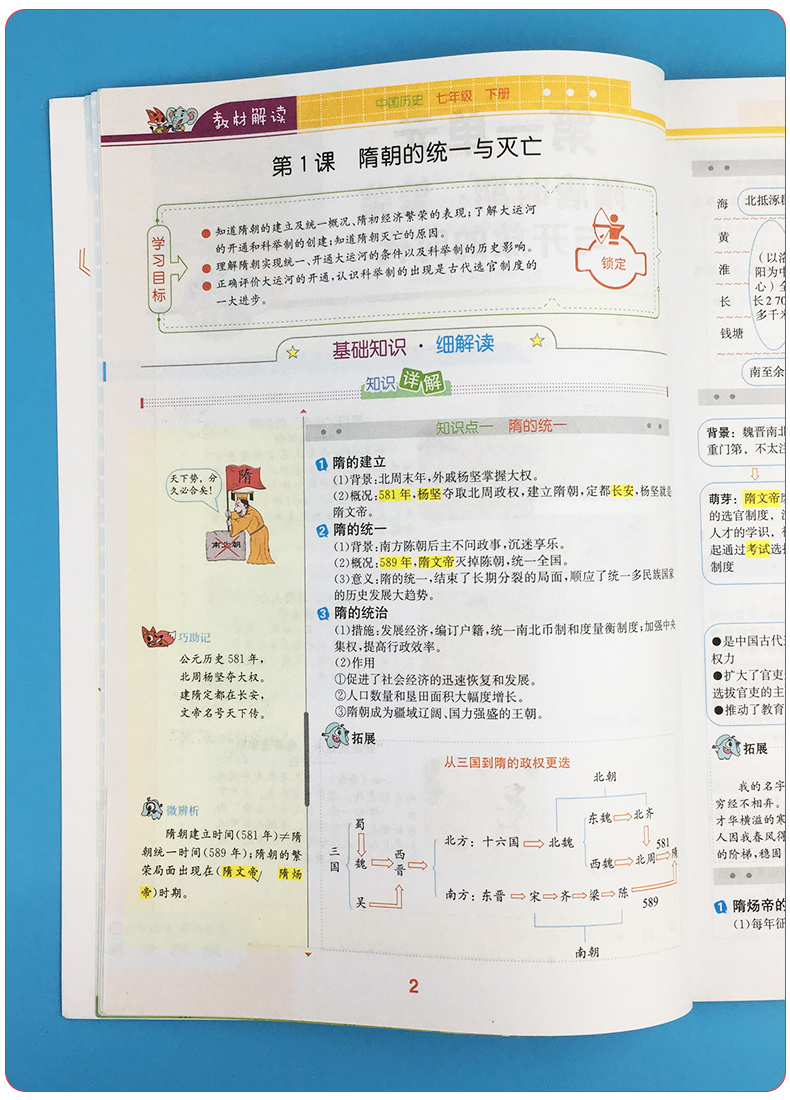 教材解读
中国历史 七年级 下册
第1课 隋朝的统一与灭亡
学习目标
●知道隋朝的建立及统一概况、隋初经济繁荣的表现;了解大运河
的开通和科举制的创建;知道隋朝灭亡的原因。
●理解隋朝实现统一、开通大运河的条件以及科举制的历史影响。
●正确评价大运河的开通,认识科举制的出现是古代选官制度的
一大进步。
锁定
基础知识·细解读
知识详解
天下势,分
久必合矣!
隋
南北朝
巧助记
公元历史581年,
北周杨坚夺大权。
建隋定都在长安,
文帝名号天下传。
微辨析
隋朝建立时间(581年)≠隋
朝统一时间(589年);隋朝的繁
荣局面出现在(隋文帝✓ 隋炀
帝)时期。
知识点一 隋的统一
1 隋的建立
(1)背景:北周末年,外戚杨坚掌握大权。
(2)概况:581年,杨坚夺取北周政权,建立隋朝,定都长安,杨坚就是
隋文帝。
2 隋的统一
(1)背景:南方陈朝后主不问政事,沉迷享乐。
(2)概况:589年,隋文帝灭掉陈朝,统一全国。
(3)意义:隋的统一,结束了长期分裂的局面,顺应了统一多民族国家
的历史发展大趋势。
3 隋的统治
(1)措施:发展经济,编订户籍,统一南北币制和度量衡制度;加强中央
集权,提高行政效率。
(2)作用
①促进了社会经济的迅速恢复和发展。
②人口数量和垦田面积大幅度增长。
③隋朝成为疆域辽阔、国力强盛的王朝。
拓展
从三国到隋的政权更迭
北朝
三国
蜀
魏
吴
西晋
北方:十六国
北魏
东魏
北齐
西魏
北周
581
隋
南方:东晋
宋
齐
梁
陈
589
南朝
2
海
黄
淮
长
钱塘
北抵涿郡
(以洛
阳为中
心)全
长2 70
多千米
南至余
背景:魏晋南北
重门第,不太注
萌芽:隋文帝
的选官制度,
人才的学识,
起通过考试选
制度
●是中国古代
权力
●扩大了官吏
选拔官吏的主
●推动了教育
拓展
我的名字
穷经不相弃。
才华横溢的寒
人因我春风得
的阶梯,稳固
1 隋炀帝的
(1)每年征